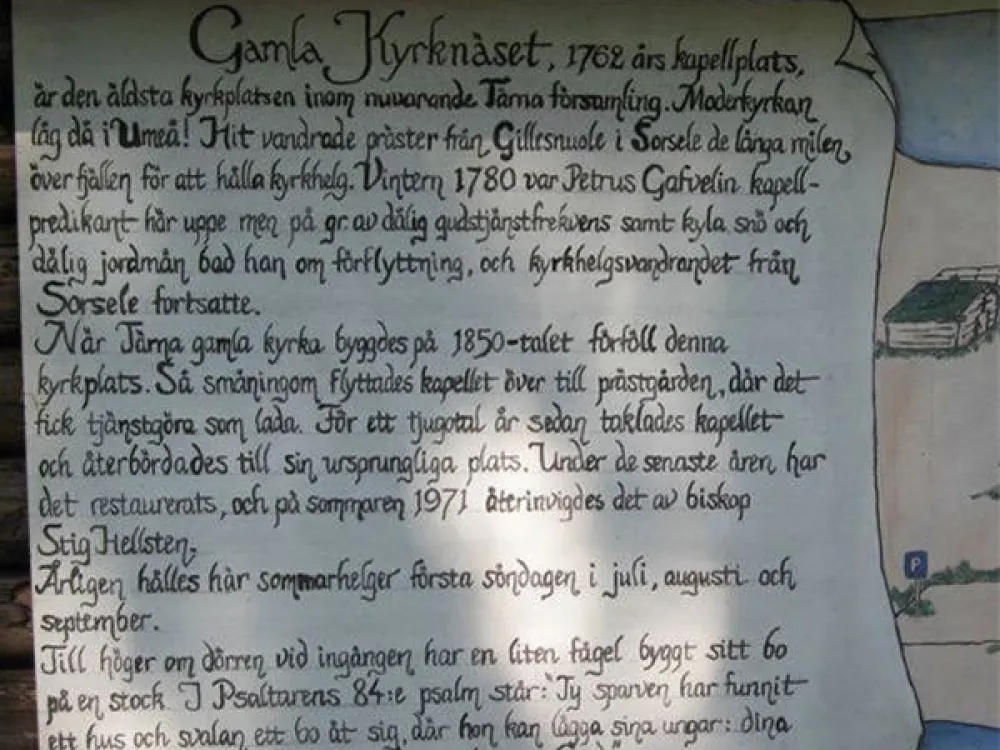 Gamla Kyrknäset, 1762 års kapellplats,
är den äldsta kyrkplatsen inom nuvarande Tärna församling. Moderkyrkan
låg då i Umeå! Hit vandrade präster från Gillesnuole i Sorsele de långa milen,
över fjällen för att hålla kyrkhelg. Vintern 1780 var Petrus Gafvelin kapell-
predikant här uppe men på gr. av dålig gudstjänstfrekvens samt kyla snö och
dålig jordmån bad han om förflyttning, och kyrkhelgsvandrandet från
Sorsele fortsatte.
När Tärna gamla kyrka byggdes på 1850-talet förföll denna
kyrkplats. Så småningom flyttades kapellet över till prästgården, där det
fick tjänstgöra som lada. För ett tjugotal år sedan taklades kapellet
och återbördades till sin ursprungliga plats. Under de senaste åren har
det restaurerats, och på sommaren 1971 återinvigdes det av biskop
Stig Hellsten.
Årligen hålles här sommarhelger första söndagen i juli, augusti och
september.
Till höger om dörren vid ingången har en liten fågel byggt sitt bo
på en stock I Psaltarens 84:e psalm står: "Ty sparven har funnit
ett hus och svalan ett bo åt sig, där hon kan lägga sina ungar: dina
P